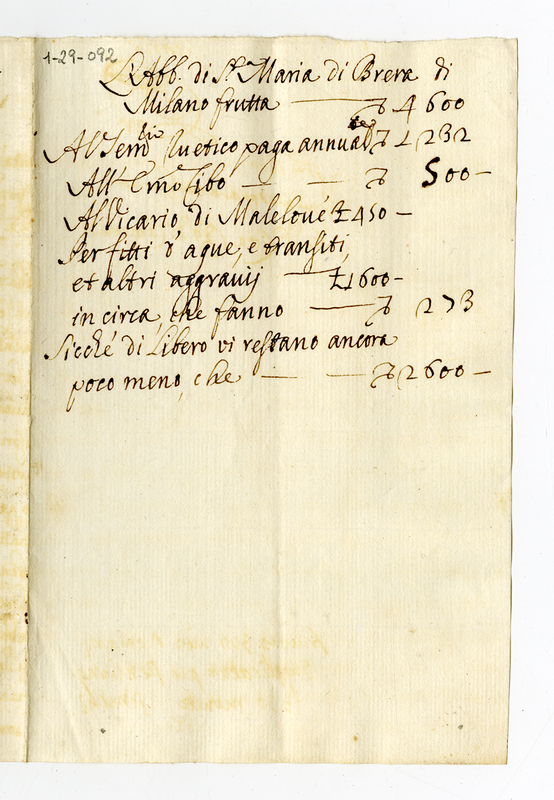 1-29-092
L'Abb. di S.ta Maria di Brera di
Milano frutta — 4600
Al Sem.rio Suetico paga annual.te 1232
All' Em.o Cibo — — 500 —
Al Vicario di Malelové £ 450 —
Per fitti d'aque, e transiti,
et altri aggravij — £ 1600 —
in circa, che fanno — 273
Sicché di Libero vi restano ancora
poco meno, che — — 2600 —